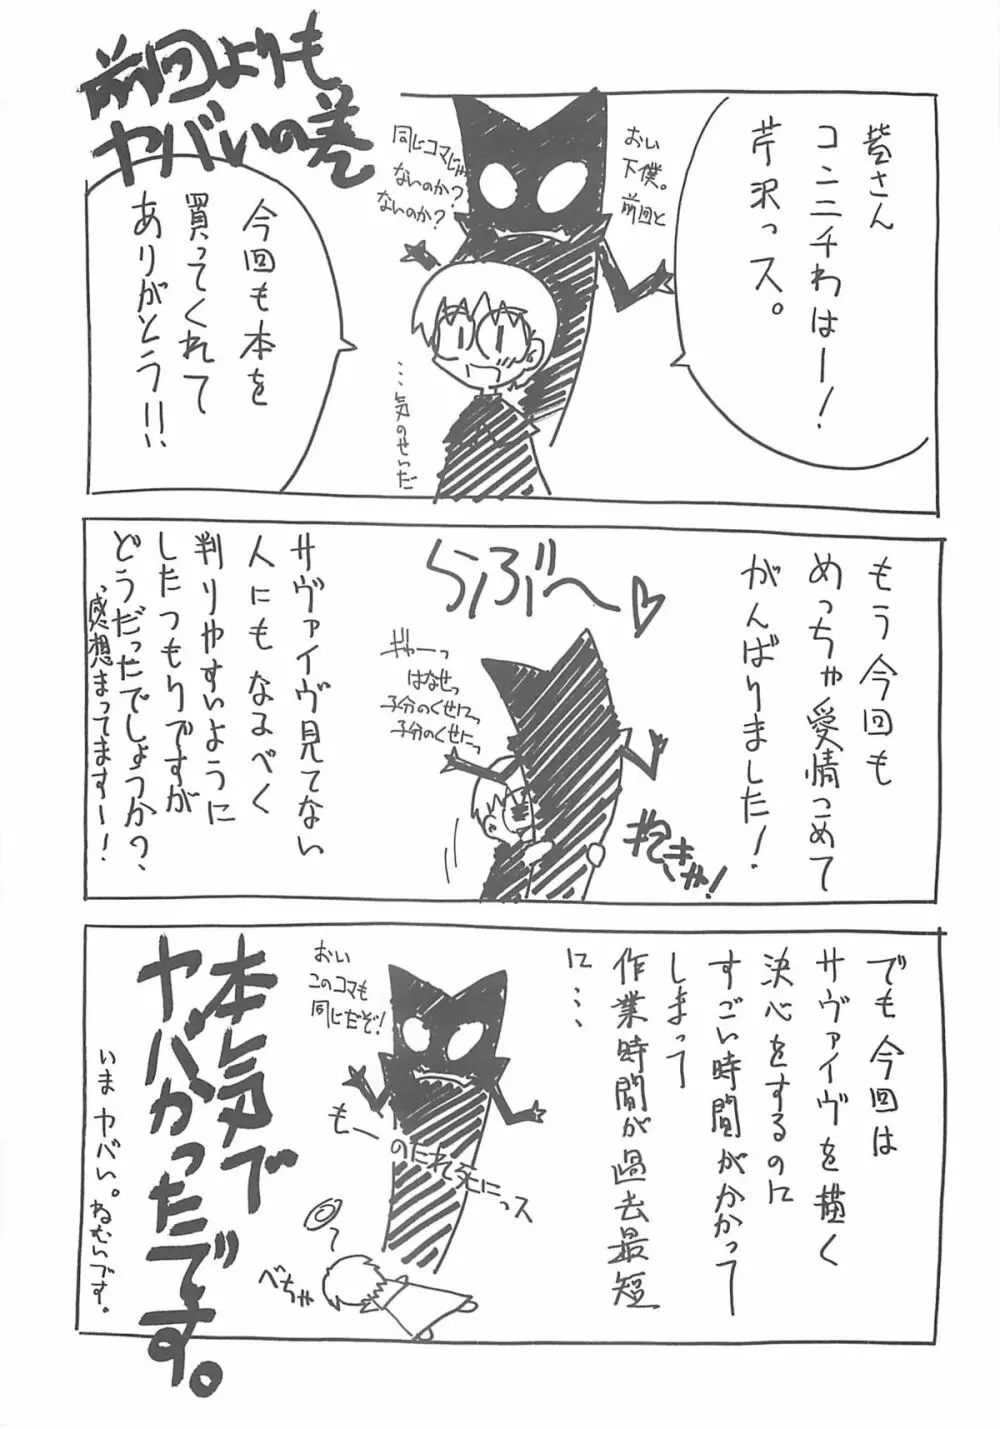 前回よりも
ヤバいの巻
皆さん
コンニチわはー!
芹沢っス。
おい
下僕。
前回と
同じコマじゃ
ないのか?
ないのか?
…気のせいだ
今回も本を
買ってくれて
ありがとう!!
もう今回も
めっちゃ愛情こめて
がんばりました!
らぶ〜♡
ギャーっ
はなせっ
子分のくせにっ
子分のくせにっ
抱きゃ!
サヴァイヴ見てない
人にもなるべく
判りやすいように
したつもりですが
どうだったでしょうか?、
感想まってますー!
でも今回は
サヴァイヴを描く
決心をするのに
すごい時間がかかって
しまって
作業時間が過去最短
に…
おい
このコマも
同じだぞ!
もー のたれ死にっス
べちゃ
本気で
ヤバかったです。
いまヤバい。ねむいです。